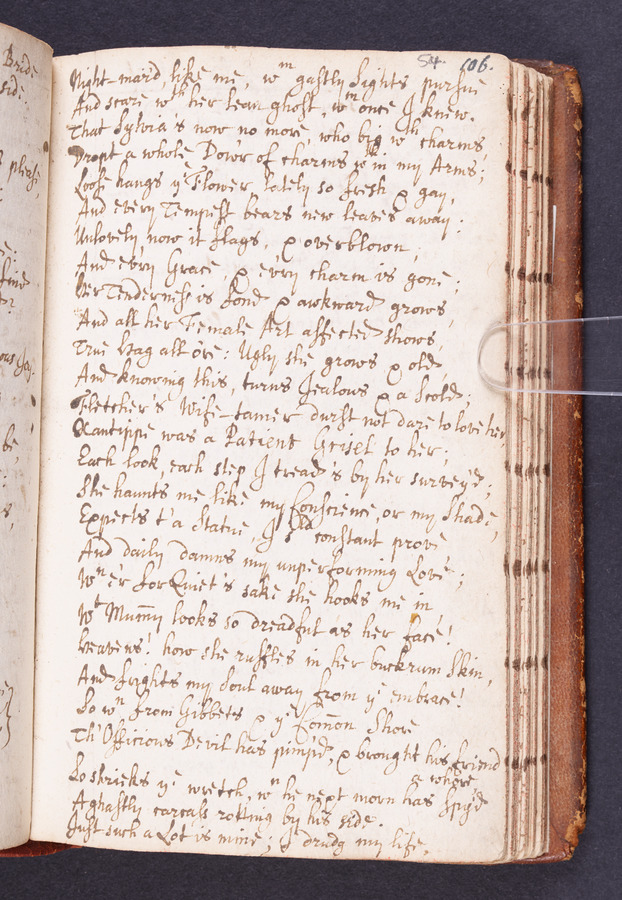 Bride
side.
please,
be,
54. 106.
Night-mair'd, like me, wm gastly sights pursue
And scare wth her lean ghost, wm once I knew.
That Sylvia's now no more, who big wth charms,
Dropt a whole Dow'r of charms in my Arms;
Loose hangs ye Flower lately so fresh & gay,
And every Tempest bears new leaves away:
Unlovely now it flags, & overblown,
And ev'ry Grace, & ev'ry charm is gone;
Her Tenderness is fond & awkward grows,
And all her Female Art affected shows,
True Hag all o're: Ugly she grows & old
And knowing this, turns Jealous & a Scold;
Fletcher's Wife-tamer durst not dare to love her,
Xantippe was a Patient Grisel to her;
Each look, each step I tread's by her survey'd;
She haunts me like my Conscience, or my Shade,
Expects t'a Statue, I shd constant prove
And daily damns my unperforming Love;
Wn e'r for Quiet's sake she hooks me in
Wt Mummy looks so dreadful as her face!
Heavens! how she ruffles in her buckrum Skin,
And frights my Soul away from ye embrace!
So wn from Gibbets & ye Common Shore
Th' Officious Devil has pimp'd, & brought his friend
a whore
So shrieks ye wretch, wn he next morn has spy'd
A ghastly carcass rotting by his side.
Just such a Lot is mine; I drudg my life,